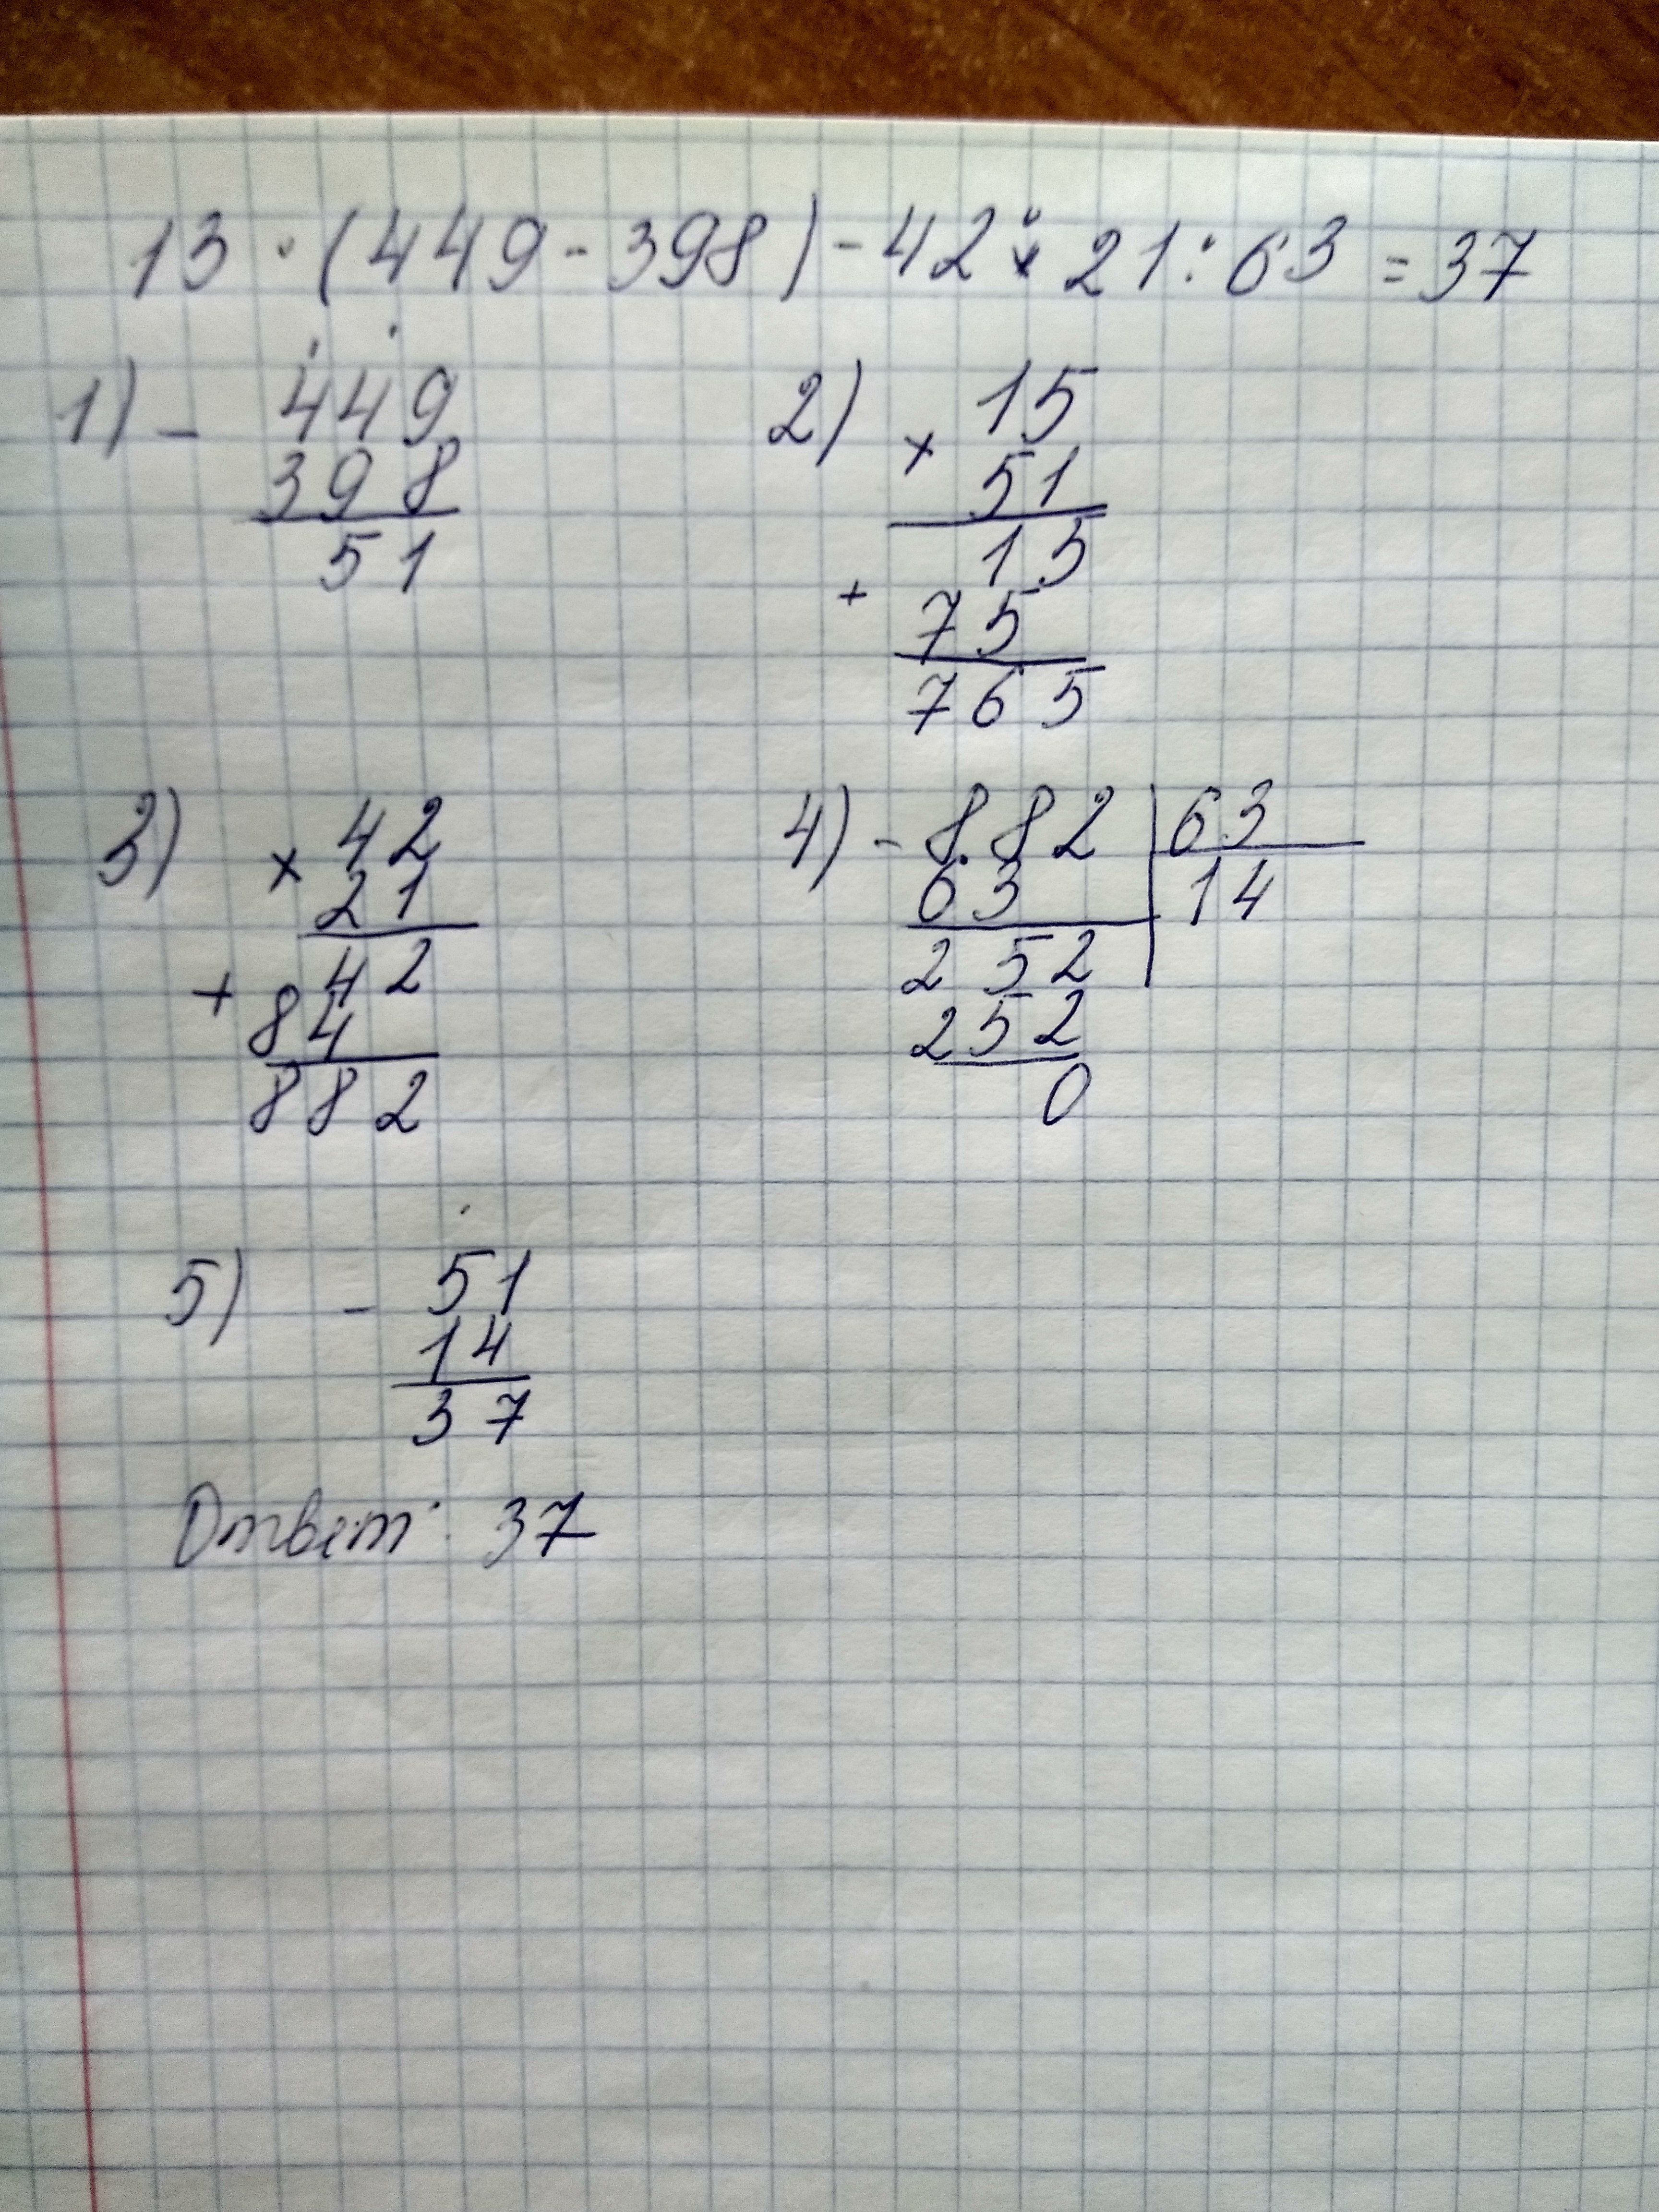 13 · (449 - 398) - 42 × 21 : 63 = 37
1) - 449
398
51
2) × 15
51
15
+ 75
765
3) × 42
21
42
+ 84
882
4) - 882 | 63
63 | 14
252
252
0
5) - 51
14
37
Ответ: 37